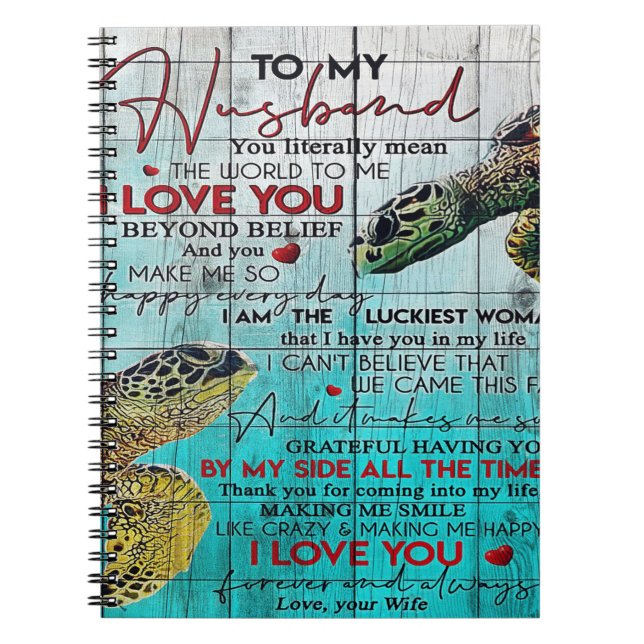 TO MY
Husband
You literally mean
THE WORLD TO ME
LOVE YOU
BEYOND BELIEF
And you
MAKE ME SO
happy every day
I AM THE LUCKIEST WOMA
that I have you in my life
I CAN'T BELIEVE THAT
WE CAME THIS FA
And it makes me so
GRATEFUL HAVING YO
BY MY SIDE ALL THE TIME
Thank you for coming into my life,
MAKING ME SMILE
LIKE CRAZY & MAKING ME HAPPY
I LOVE YOU
forever and always
Love, your Wife